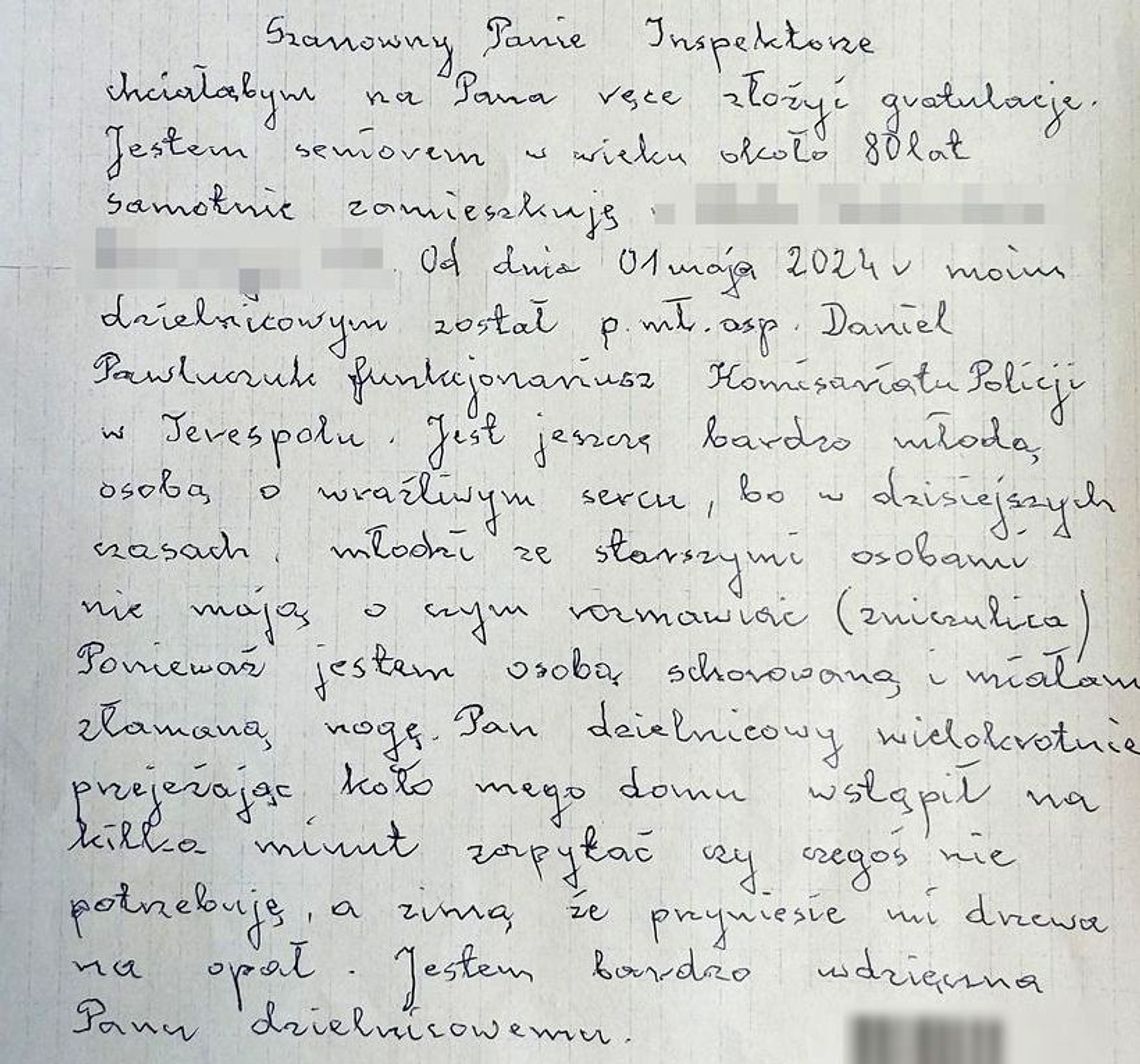 Szanowny Panie Inspektorze
chciałabym na Pana ręce złożyć gratulacje.
Jestem seniorem w wieku około 80 lat
samotnie zamieszkuję
. Od dnia 01 maja 2024 r moim
dzielnicowym został p. mł. asp. Daniel
Pawluczuk funkcjonariusz Komisariatu Policji
w Terespolu. Jest jeszczę bardzo młodą
osobą o wrażliwym sercu, bo w dzisiejszych
czasach. młodzi ze starszymi osobami
nie mają o czym rozmawiać (znieczulica)
Ponieważ jestem osobą schorowaną i miałam
złamaną nogę. Pan dzielnicowy wielokrotnie
przejeżając koło mego domu wstąpił na
kilka minut zapytać czy czegoś nie
potrzebuję, a zimą że przyniesie mi drzewa
na opał. Jestem bardzo wdzięczna
Panu dzielnicowemu.